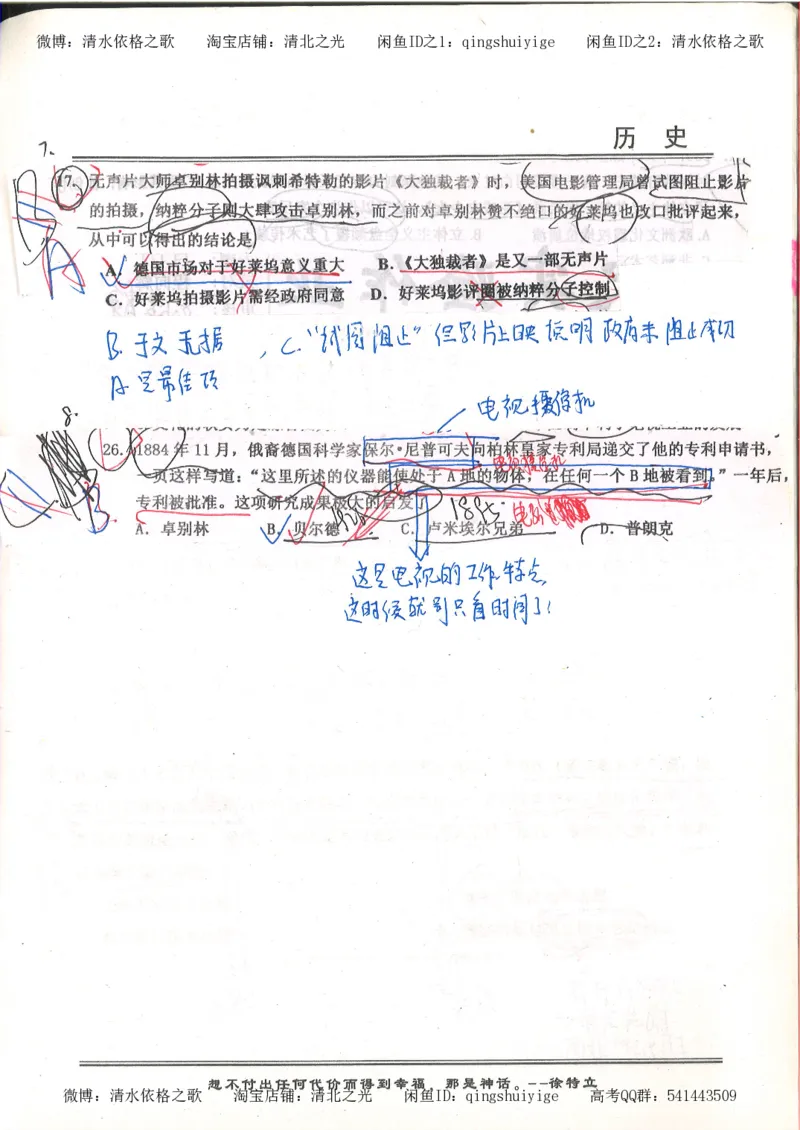 微博：清水依格之歌 淘宝店铺：清北之光 闲鱼ID之1：qingshuiyige 闲鱼ID之2：清水依格之歌
历 史
7.
17. 无声片大师卓别林拍摄讽刺希特勒的影片《大独裁者》时，美国电影管理局曾试图阻止影片
的拍摄，纳粹分子则大肆攻击卓别林，而之前对卓别林赞不绝口的好莱坞也改口批评起来，
从中可以得出的结论是
A
A．德国市场对于好莱坞意义重大 B．《大独裁者》是又一部无声片
C．好莱坞拍摄影片需经政府同意 D．好莱坞影评圈被纳粹分子控制
B. 于文无据，C.“试图阻止”但影片上映说明政府未阻止成功
A. 是最佳项
8.
电视摄像机
26. 1884 年 11 月，俄裔德国科学家保尔·尼普可夫向柏林皇家专利局递交了他的专利申请书，
一页这样写道：“这里所述的仪器能使处于 A 地的物体，在任何一个 B 地被看到。”一年后，
专利被批准。这项研究成果极大的启发了
B.
1895
A．卓别林 B．贝尔德 C．卢米埃尔兄弟 D．普朗克
这是电视的工作特点，
这时候就别只看时间了！
想不付出任何代价而得到幸福，那是神话。--徐特立
微博：清水依格之歌 淘宝店铺：清北之光 闲鱼ID：qingshuiyige 高考QQ群：541443509